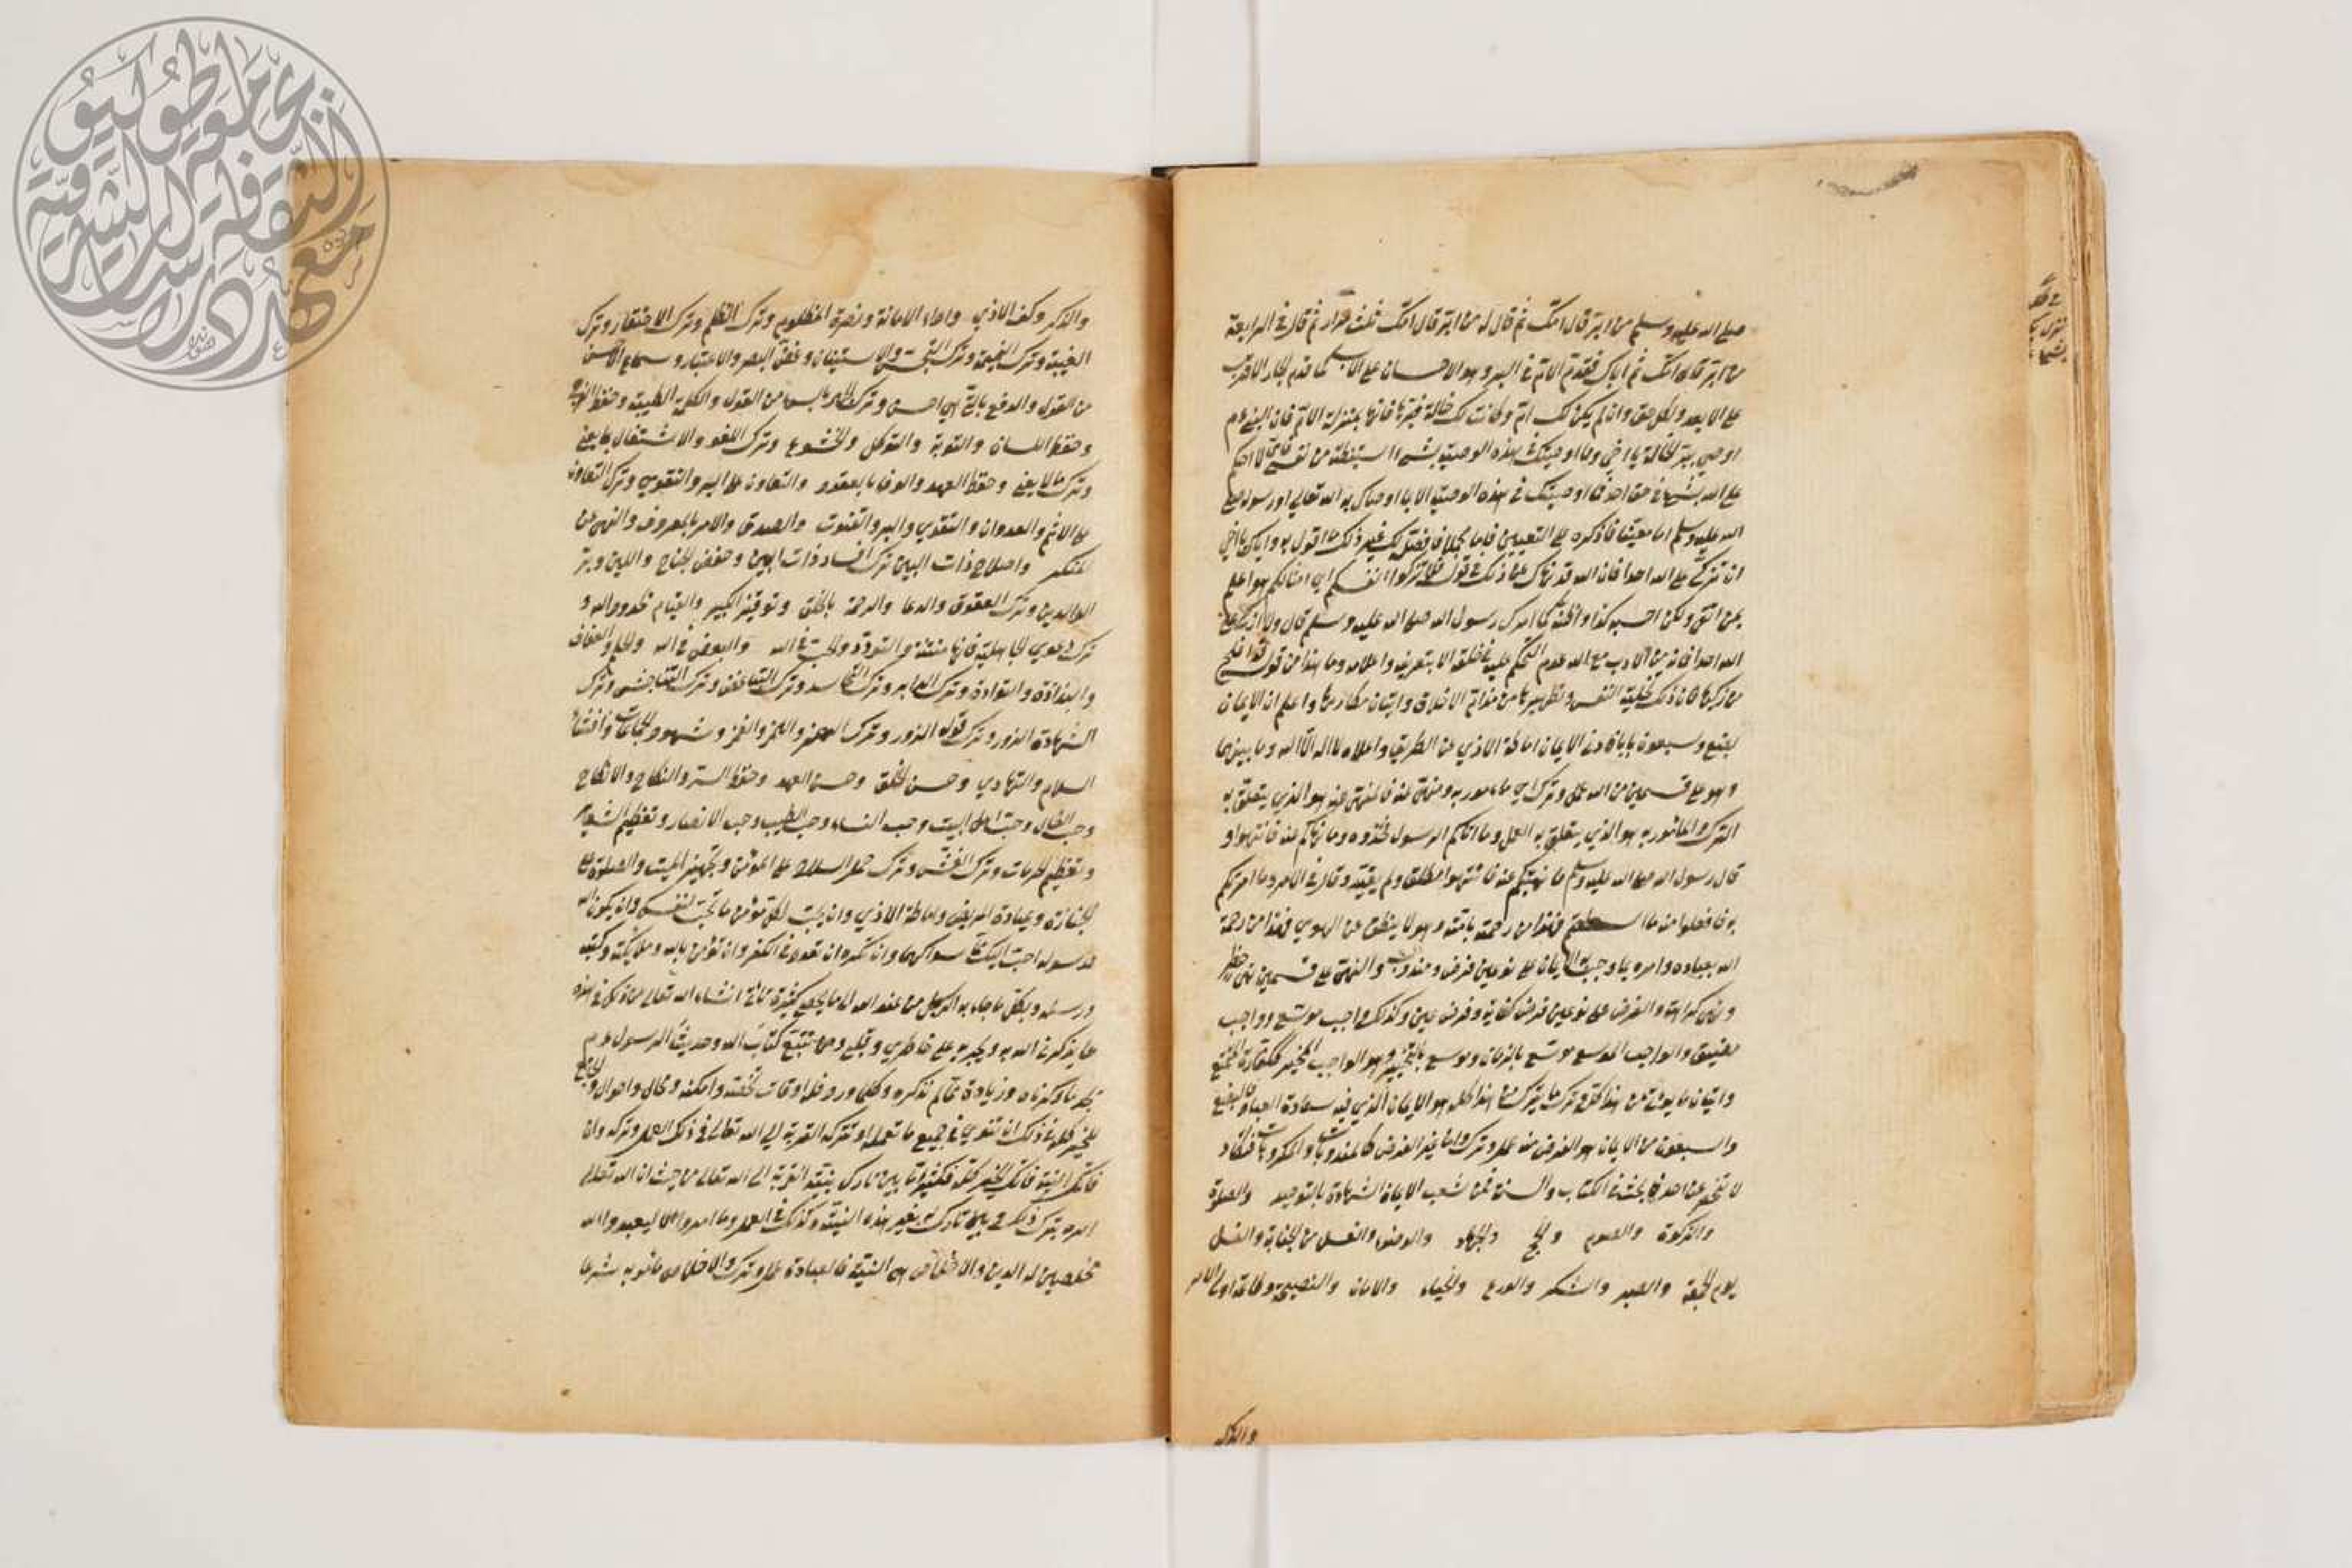 صلى الله عليه وسلم من ابر قال امك ثم قال له من ابر قال امك ثلث مرار ثم قال في الرابعة
من ابر قال امك ثم اباك فقدم الام في البر وهو الاحسان على الاب كما قدم الجار الاقرب
على الابعد ولكل حق وان لم يكن لك ام وكانت لك خالة فبرها فانها بمنزلة الام فان النبي عم
اوصى ببر الخالة يا اخي وما اوصيتك في هذه الوصية بشيء استنبطته من نفسي فاني لا احكم
على الله بشيء في حق احد فما اوصيتك في هذه الوصية الا بما اوصاك به الله تعالى او رسوله صلى
الله عليه وسلم اما معينا فاذكره على التعيين واما مجملا فافصله لك غير ذلك ما اقول به واياك يا اخي
ان تزكي على الله احدا فان الله قد نهاك عن ذلك في قوله فلا تزكوا انفسكم اي امثالكم هو اعلم
بمن اتقى ولكن احسبه كذا واظنه كما امرك رسول الله صلى الله عليه وسلم قال ولا ازكي على
الله احدا فانه من الادب مع الله عدم التحكم عليه في خلقه الا بتعريفه واعلامه وما هذا من قوله قد افلح
من زكيها فان ذلك تحلية النفس وتطهيرها من مذام الاخلاق واتيان مكارمها واعلم ان الايمان
بضع وسبعون بابا ادنى الايمان اماطة الاذي عن الطريق واعلاه لا اله الا الله وما بينهما
وهو على قسمين من الله عمل وترك اي مامور به ومنهي عنه فالمنهي عنه هو الذي يتعلق به
الترك والمامور به هو الذي يتعلق به العمل وما اتاكم الرسول فخذوه وما نهاكم عنه فانتهوا و
قال رسول الله صلى الله عليه وسلم ما نهيتكم عنه فانتهوا مطلقا ولم يقيد وقال في الامر وما امرتكم
به فافعلوا منه ما استطعتم فهذا من رحمته بامته وهو لا ينطق عن الهوي فهذا من رحمة
الله بعباده وامره بما وجب به الايمان على نوعين فرض ومندوب والنهي على قسمين نهي حظر
ونهي كراهة والفرض على نوعين فرض كفاية وفرض عين وكذلك واجب موسع وواجب
مضيق والواجب الموسع موسع بالزمان وموسع بالتخيير وهو الواجب المخير ككفارة المتمتع
واتيان ما يؤتى من هذا كله وترك ما يترك من هذا كله هو الايمان الذي فيه سعادة العباد فالبضع
والسبعون من الايمان هو الفرض منه عمل وترك واما غير الفرض كالمندوبات والمكروهات فتكاد
لا تنحصر عند احد فابحث في الكتاب والسنة فمن شعب الايمان الشهادة بالتوحيد والصلوة
والزكوة والصوم والحج والجهاد والوضوء والغسل من الجنابة والغسل
يوم الجمعة والصبر والشكر والورع والحياء والامان والنصيحة وطاعة اولى الامر
والذكر
والذكر وكف الاذي واداء الامانة ونصرة المظلوم وترك الظلم وترك الاحتقار وترك
الغيبة وترك النميمة وترك التجسس والاستيذان وغض البصر والاعتبار وسماع الاحسن
من القول والدفع بالتي هي احسن وترك الجهر بالسوء من القول والكلمة الطيبة وحفظ الفرج
وحفظ اللسان والتوبة والتوكل والخشوع وترك اللغو والاشتغال بما يعني
وترك ما لا يعني وحفظ العهد والوفاء بالعقود والتعاون على البر والتقوي وترك التعاون
على الاثم والعدوان والتقوي والبر والقنوت والصدق والامر بالمعروف والنهي عن
المنكر واصلاح ذات البين وترك افساد ذات البين وخفض الجناح واللين وبر
الوالدين وترك العقوق والدعا والرحمة بالخلق وتوقير الكبير والقيام بحدود الله و
ترك دعوي الجاهلية فانها منتنة والتودد والحب في الله والبغض في الله والحلم والعفاف
والبذاذة والتوادة وترك التدابر وترك التحاسد وترك التباغض وترك التناجش وترك
الشهادة الزور وترك قول الزور وترك الهمز واللمز والغمز وشهود الجماعات وافشاء
السلام والتهادي وحسن الخلق وحسن العهد وحفظ السر والنكاح والانكاح
وحب الفال وحب اهل البيت وحب النساء وحب الطيب وحب الانصار وتعظيم الشعائر
وتعظيم الحرمات وترك الغش وترك حمل السلاح على المؤمن وتجهيز الميت والصلوة على
الجنازة وعيادة المريض واماطة الاذي وان يحب لكل مؤمن ما تحب لنفسك وان يكون الله
ورسوله احب اليك مما سواهما وان تكره ان تعود في الكفر وان تؤمن بالله وملايكته وكتبه
ورسله وبكل ما جاءت به الرسل من عند الله الى ما لا يحصى كثرة ياتي ان شاء الله تعالى من ذلك في هذه
ما يذكرني الله به ويجريه على خاطري وقلبي ومن تتبع كتاب الله وحديث الرسول عم
يجد ما ذكرناه وزيادة مما لم نذكره وكلما ورد فله اوقات تخصه وامكنة ومحال واحوال والجامع
للخير كله في ذلك ان تنوي في جميع ما تعمله او تتركه القربة الى الله تعالى في ذلك العمل وتركه وان
فاتتك النية فاتك الخير كله فكثيرا ما بين تارك بنية القربة الى الله تعالى من حيث ان الله تعالى
امره بترك ذلك وبين تارك له بغير هذه النية وكذلك في العمل وما امروا الا ليعبدوا الله
مخلصين له الدين والاخلاص هو النية فالعبادة عمل وترك والاخلاص مامور به شرعا
جامعة طوكيو
الثقافة الشرقية
معهد دراسات